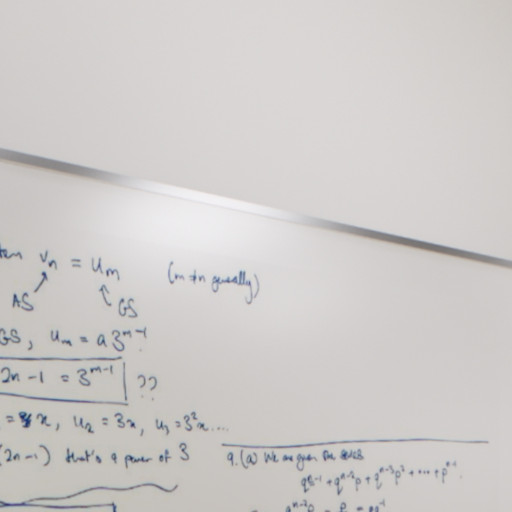 vₙ = uₘ (m≠n generally)
AS GS
GS, uₘ = a3ᵐ⁻¹
2n-1 = 3ᵐ⁻¹ ??
= x, u₂ = 3x, u₃ = 3²x....
(2n-1) that's a power of 3
9. (a) We are given the series
qⁿ⁻¹ + qⁿ⁻²p + qⁿ⁻³p² + .... + pⁿ⁻¹